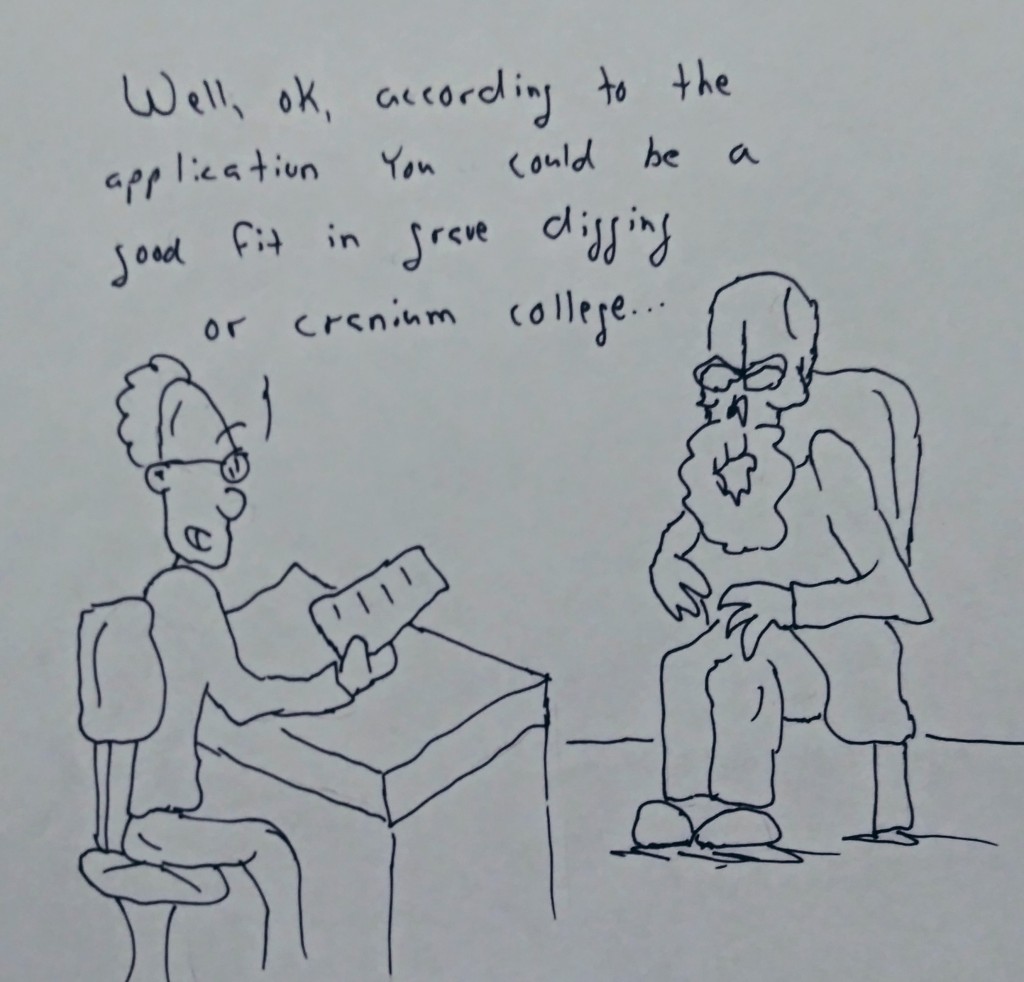 Well, ok, according to the
application You could be a
good fit in grave digging
or cranium college...